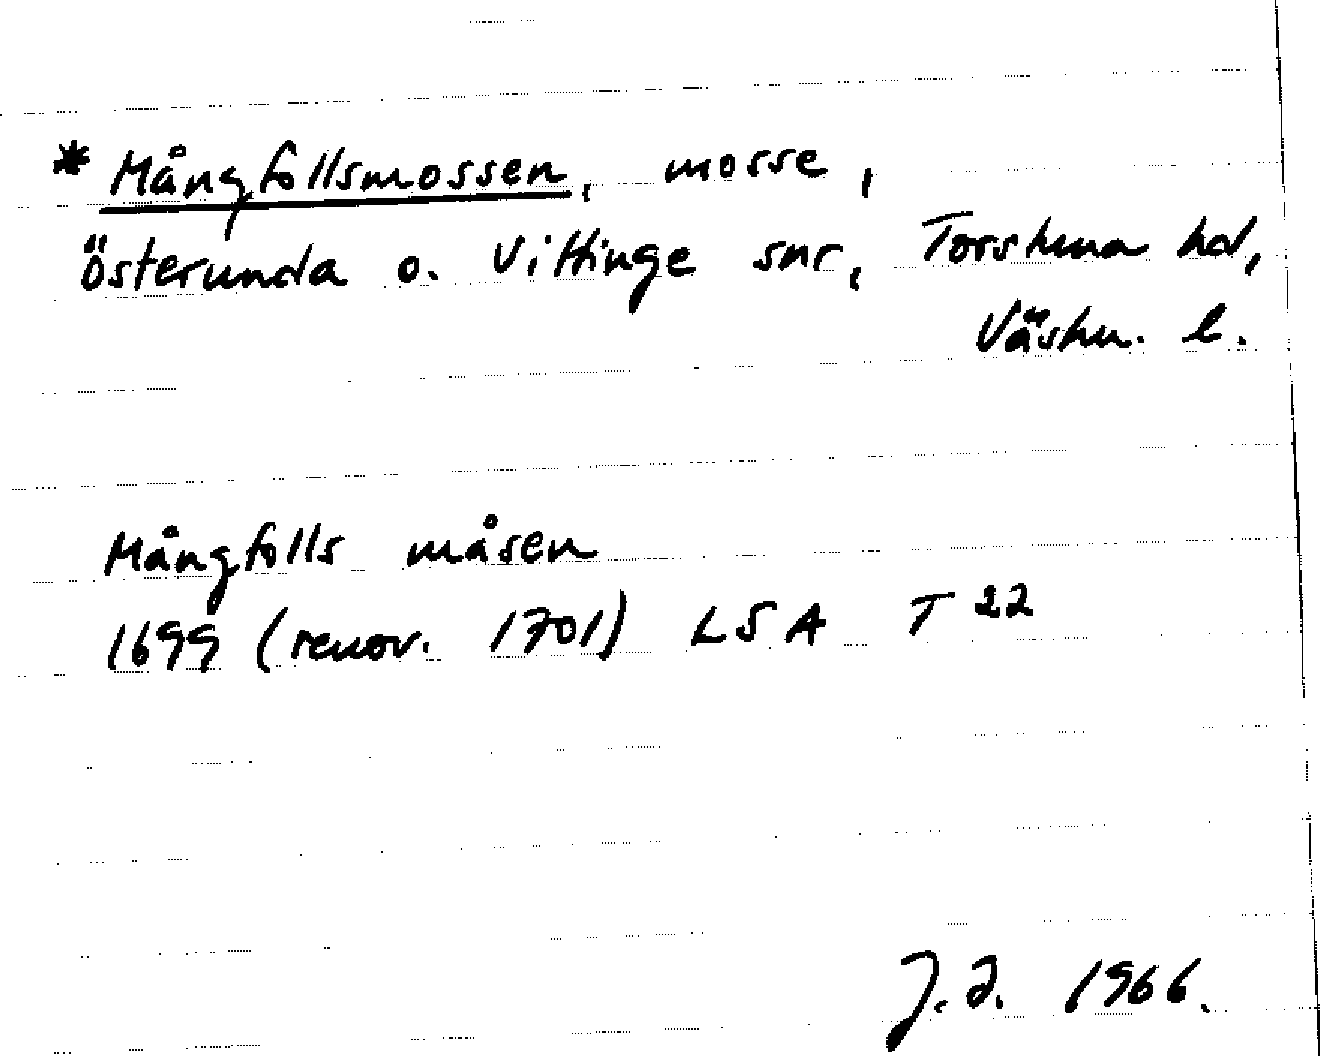 * Mångfollsmossen, mosse,
Österunda o. Vittinge snr, Torstuna hd,
Västm. l.
Mångfolls måsen
1699 (renov. 1701) LSA T 22
J.I. 1966.